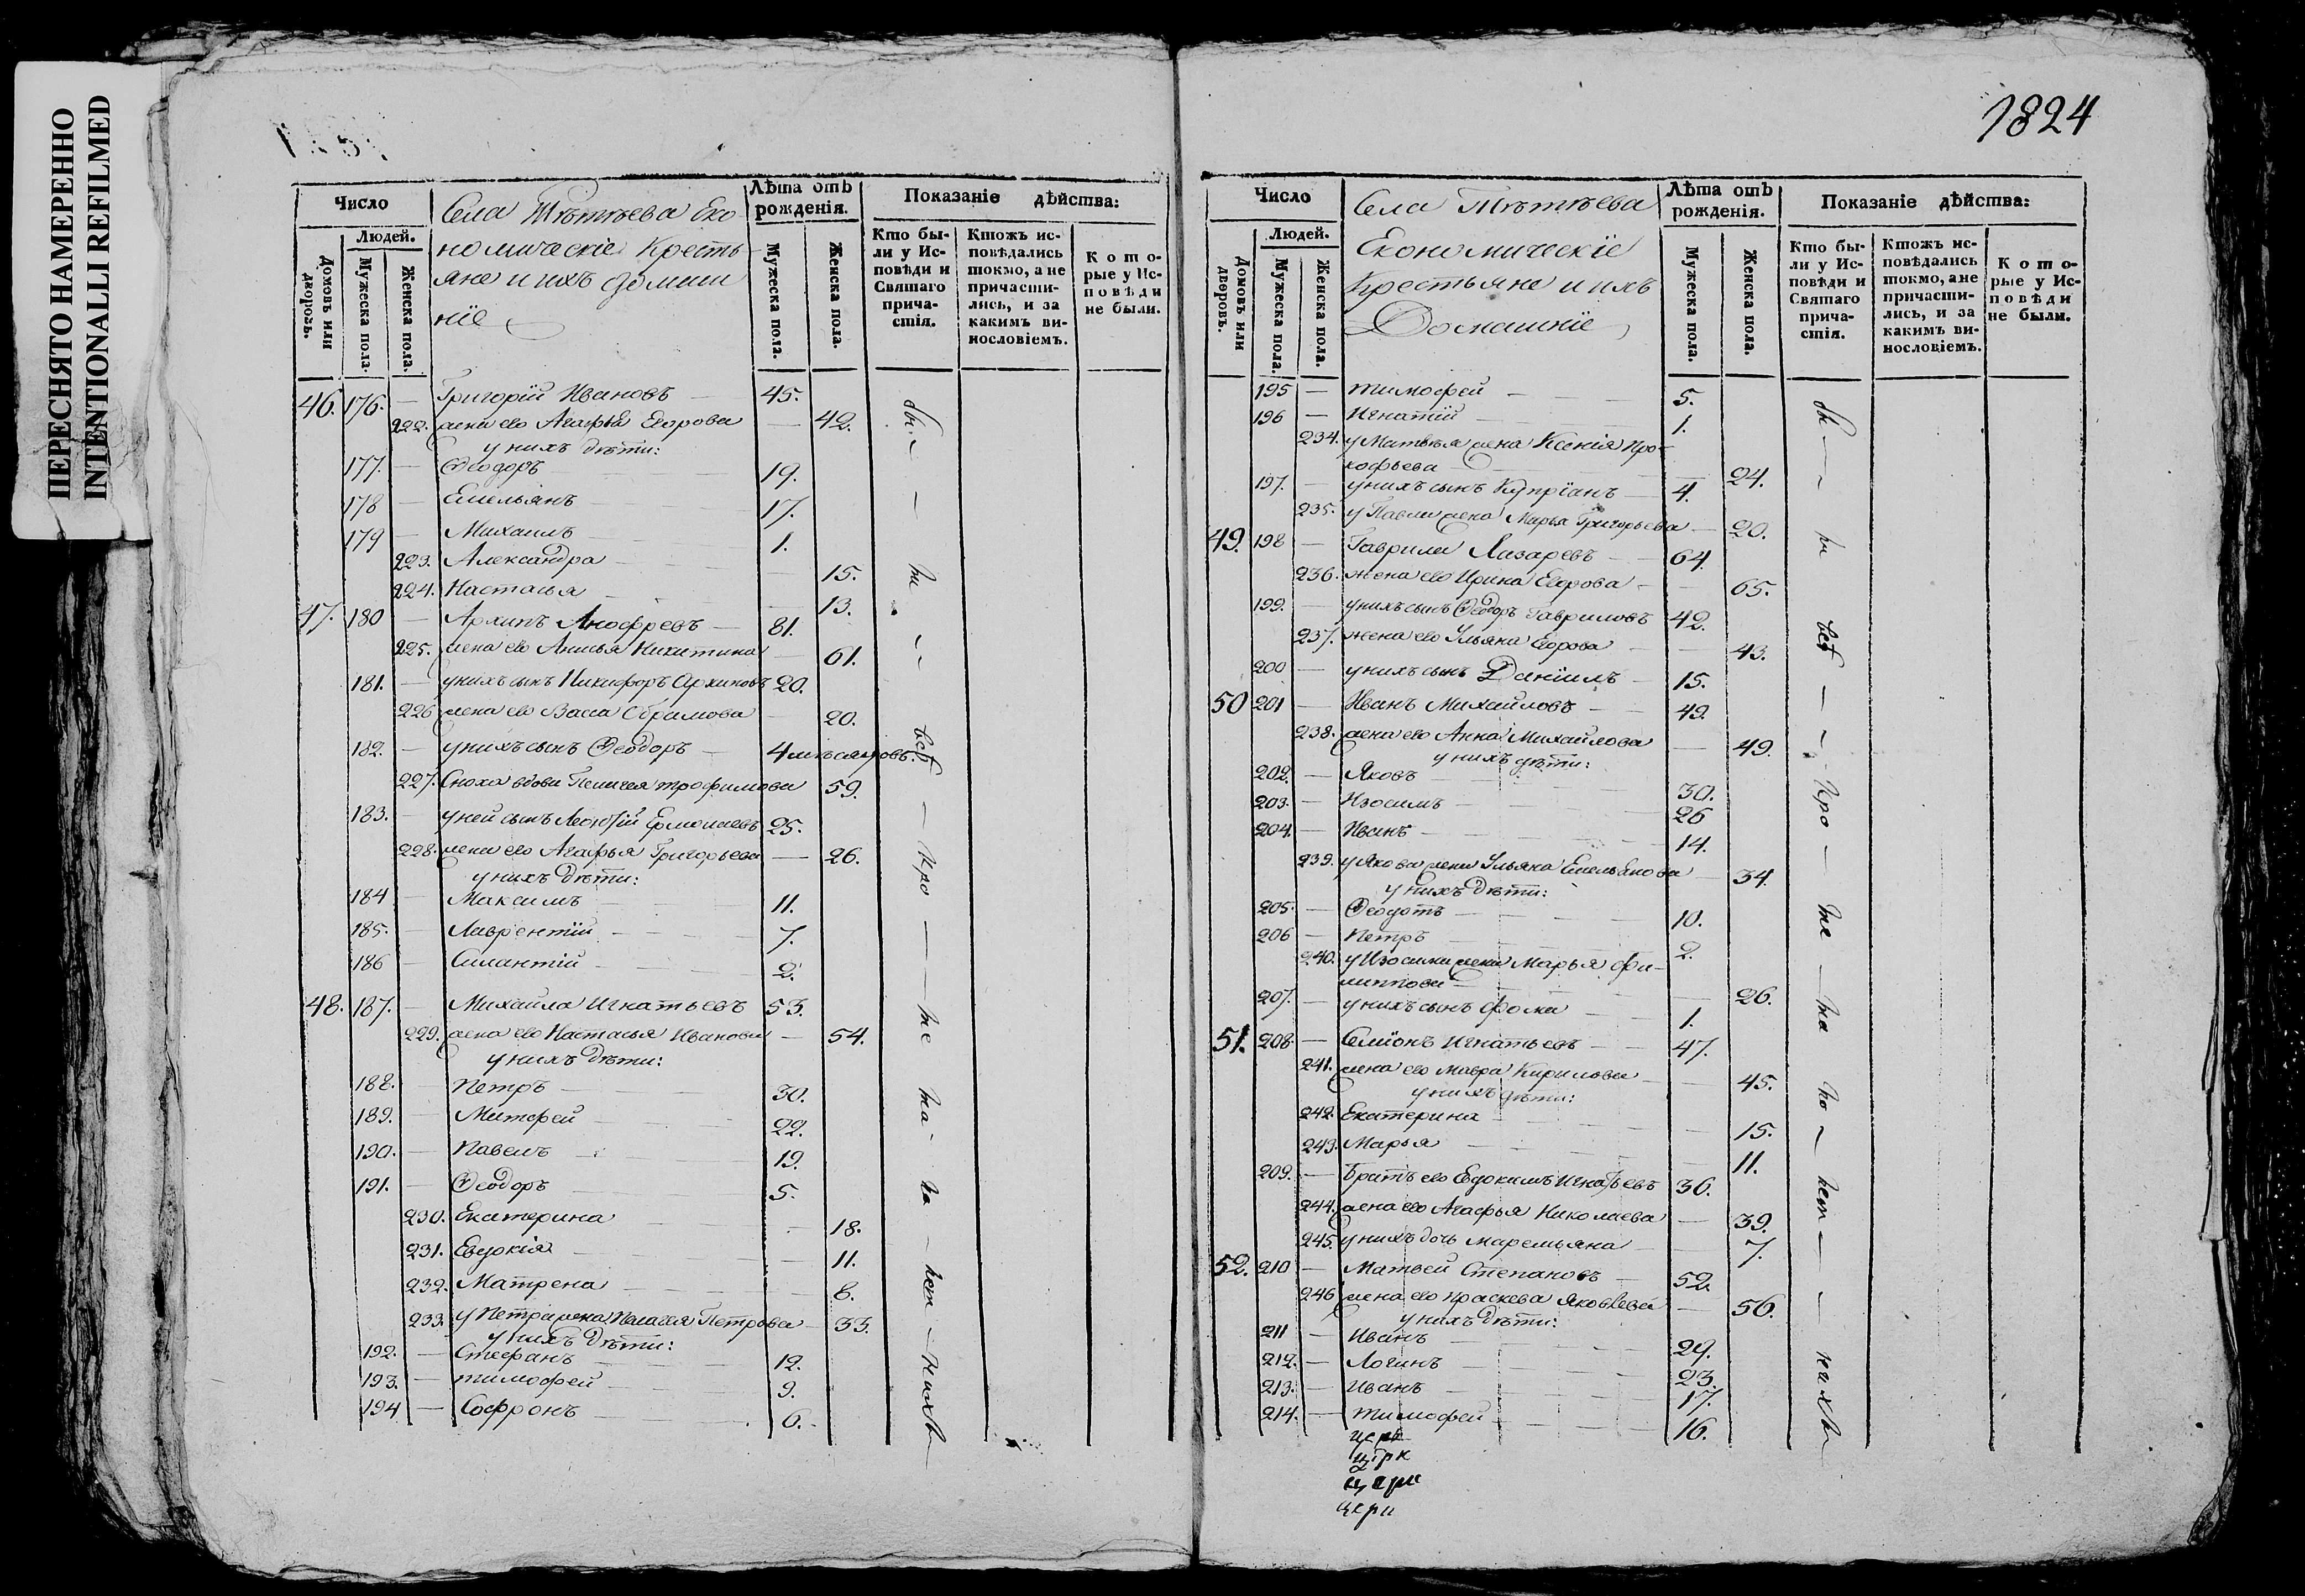 ПЕРЕСНЯТО НАМЕРЕННО
INTENTIONALLI REFILMED
1824
Число
Людей.
Домовъ или дворовъ.
Мужеска пола.
Женска пола.
Села Тѣтѣева Еко
номическіе Кресть
яне и ихъ домаш
ніе
Лѣта отъ рожденія.
Мужеска пола.
Женска пола.
Показаніе дѣйства:
Кто бы-
ли у Ис-
повѣди и
Святаго
прича-
стія.
Ктожъ ис-
повѣдались
токмо, а не
причасти-
лись, и за
какимъ ви-
нословіемъ.
К о т о-
рые у Ис-
п о в ѣ д и
не были.
46. 176. — Григорій Ивановъ — 45.
222. жена ево Агафья Егорова — 42.
у нихъ дѣти:
177. — Ѳеодоръ 19.
178 — Емельянъ 17.
179 — Михаилъ 1.
223. Александра 15.
224. Настасья 13.
47. 180 — Архипъ Анофревъ — 81.
225. жена ево Анисья Никитина — 61.
181. — у нихъ сынъ Никифоръ Архиповъ 20.
226 жена ево Васса Абрамова — 20.
182. — у нихъ сынъ Ѳеодоръ — 4 мѣсяцовъ.
227. Сноха вдова Пелагея трофимова 59.
183. — у ней сынъ Леонтій Ермолаевъ 25.
228. жена ево Агафья Григорьева — 26.
у нихъ дѣти:
184 — Максимъ 11.
185. — Лаврентій 7.
186 — Силантій 2.
48. 187. — Михайла Игнатьевъ 53.
229. жена ево Настасья Иванова — 54.
у нихъ дѣти:
188. — Петръ 30.
189. — Матфей 22.
190. — Павелъ 19.
191. — Ѳеодоръ 5.
230. Екатерина 18.
231. Евдокія 11.
232. Матрена 8.
233. у Петра жена Пелагея Петрова — 33.
у нихъ дѣти:
192. — Стефанъ 12.
193. — тимофей 9.
194 — Софронъ 6.
Число
Людей.
Домовъ или дворовъ.
Мужеска пола.
Женска пола.
Села Тѣтѣева
Економическіе
Крестьяне и ихъ
Домашніе
Лѣта отъ рожденія.
Мужеска пола.
Женска пола.
Показаніе дѣйства:
Кто бы-
ли у Ис-
повѣди и
Святаго
прича-
стія.
Ктожъ ис-
повѣдались
токмо, ане
причасти-
лись, и за
какимъ ви-
нословіемъ.
К о т о-
рые у Ис-
п о в ѣ д и
не были.
195 — тимофей 5.
196 — Игнатій 1.
234. у Матвѣя жена Ксенія Про-
кофьева — 24.
197. — у нихъ сынъ Купріанъ — 4.
235. у Павла жена Марья Григорьева — 20.
49. 198 — Гаврила Лазаревъ — 64.
236. жена ево Ирина Егорова — 65.
199. — у нихъ сынъ Ѳеодоръ Гавриловъ 42.
237. жена ево Ульяна Егорова — 43.
200 — у нихъ сынъ Даніилъ — 15.
50 201 — Иванъ Михайловъ — 49.
238. жена ево Анна Михайлова — 49.
у нихъ дѣти:
202. — Яковъ 30.
203. — Изосимъ 26
204. — Иванъ 14.
239. у Якова жена Ульяна Емельянова — 34.
у нихъ дѣти:
205. — Ѳеодотъ 10.
206 — Петръ 2.
240. у Изосима жена Марья Фи-
липпова — 26.
207. — у нихъ сынъ Фома 1.
51. 208. — Семіонъ Игнатьевъ — 47.
241. жена ево Мавра Кирилова — 45.
у нихъ дѣти:
242. Екатерина 15.
243. Марья 11.
209. — Братъ ево Евдокимъ Игнатьевъ 36.
244. жена ево Агафья Николаева — 39.
245. у нихъ дочь Маремьяна 7.
52. 210 — Матвей Степановъ — 52.
246 жена ево праскева Яковлева — 56.
у нихъ дѣти:
211 — Иванъ 29.
212. — Логинъ 23.
213. — Иванъ 17.
214. — тимофей 16.